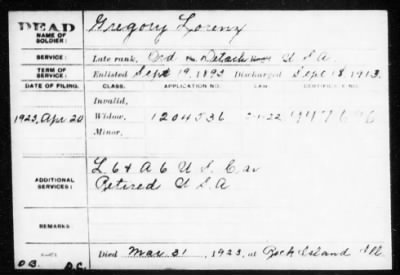 DEAD
NAME OF SOLDIER: Gregory Lorenz
SERVICE: Late rank, Ord Detach U S A
TERM OF SERVICE: Enlisted Sept 19, 1893 Discharged Sept 18, 1913.
DATE OF FILING. CLASS. APPLICATION NO. LAW. CERTIFICATE NO.
Invalid,
1923, Apr 20 Widow, 1204536
Minor,
ADDITIONAL SERVICES: L. 6 & A 6 U S Cav
Retired U S A
REMARKS:
Died Mar 31, 1923, at Rock Island Ill.